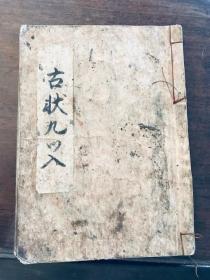 古状九ツ入